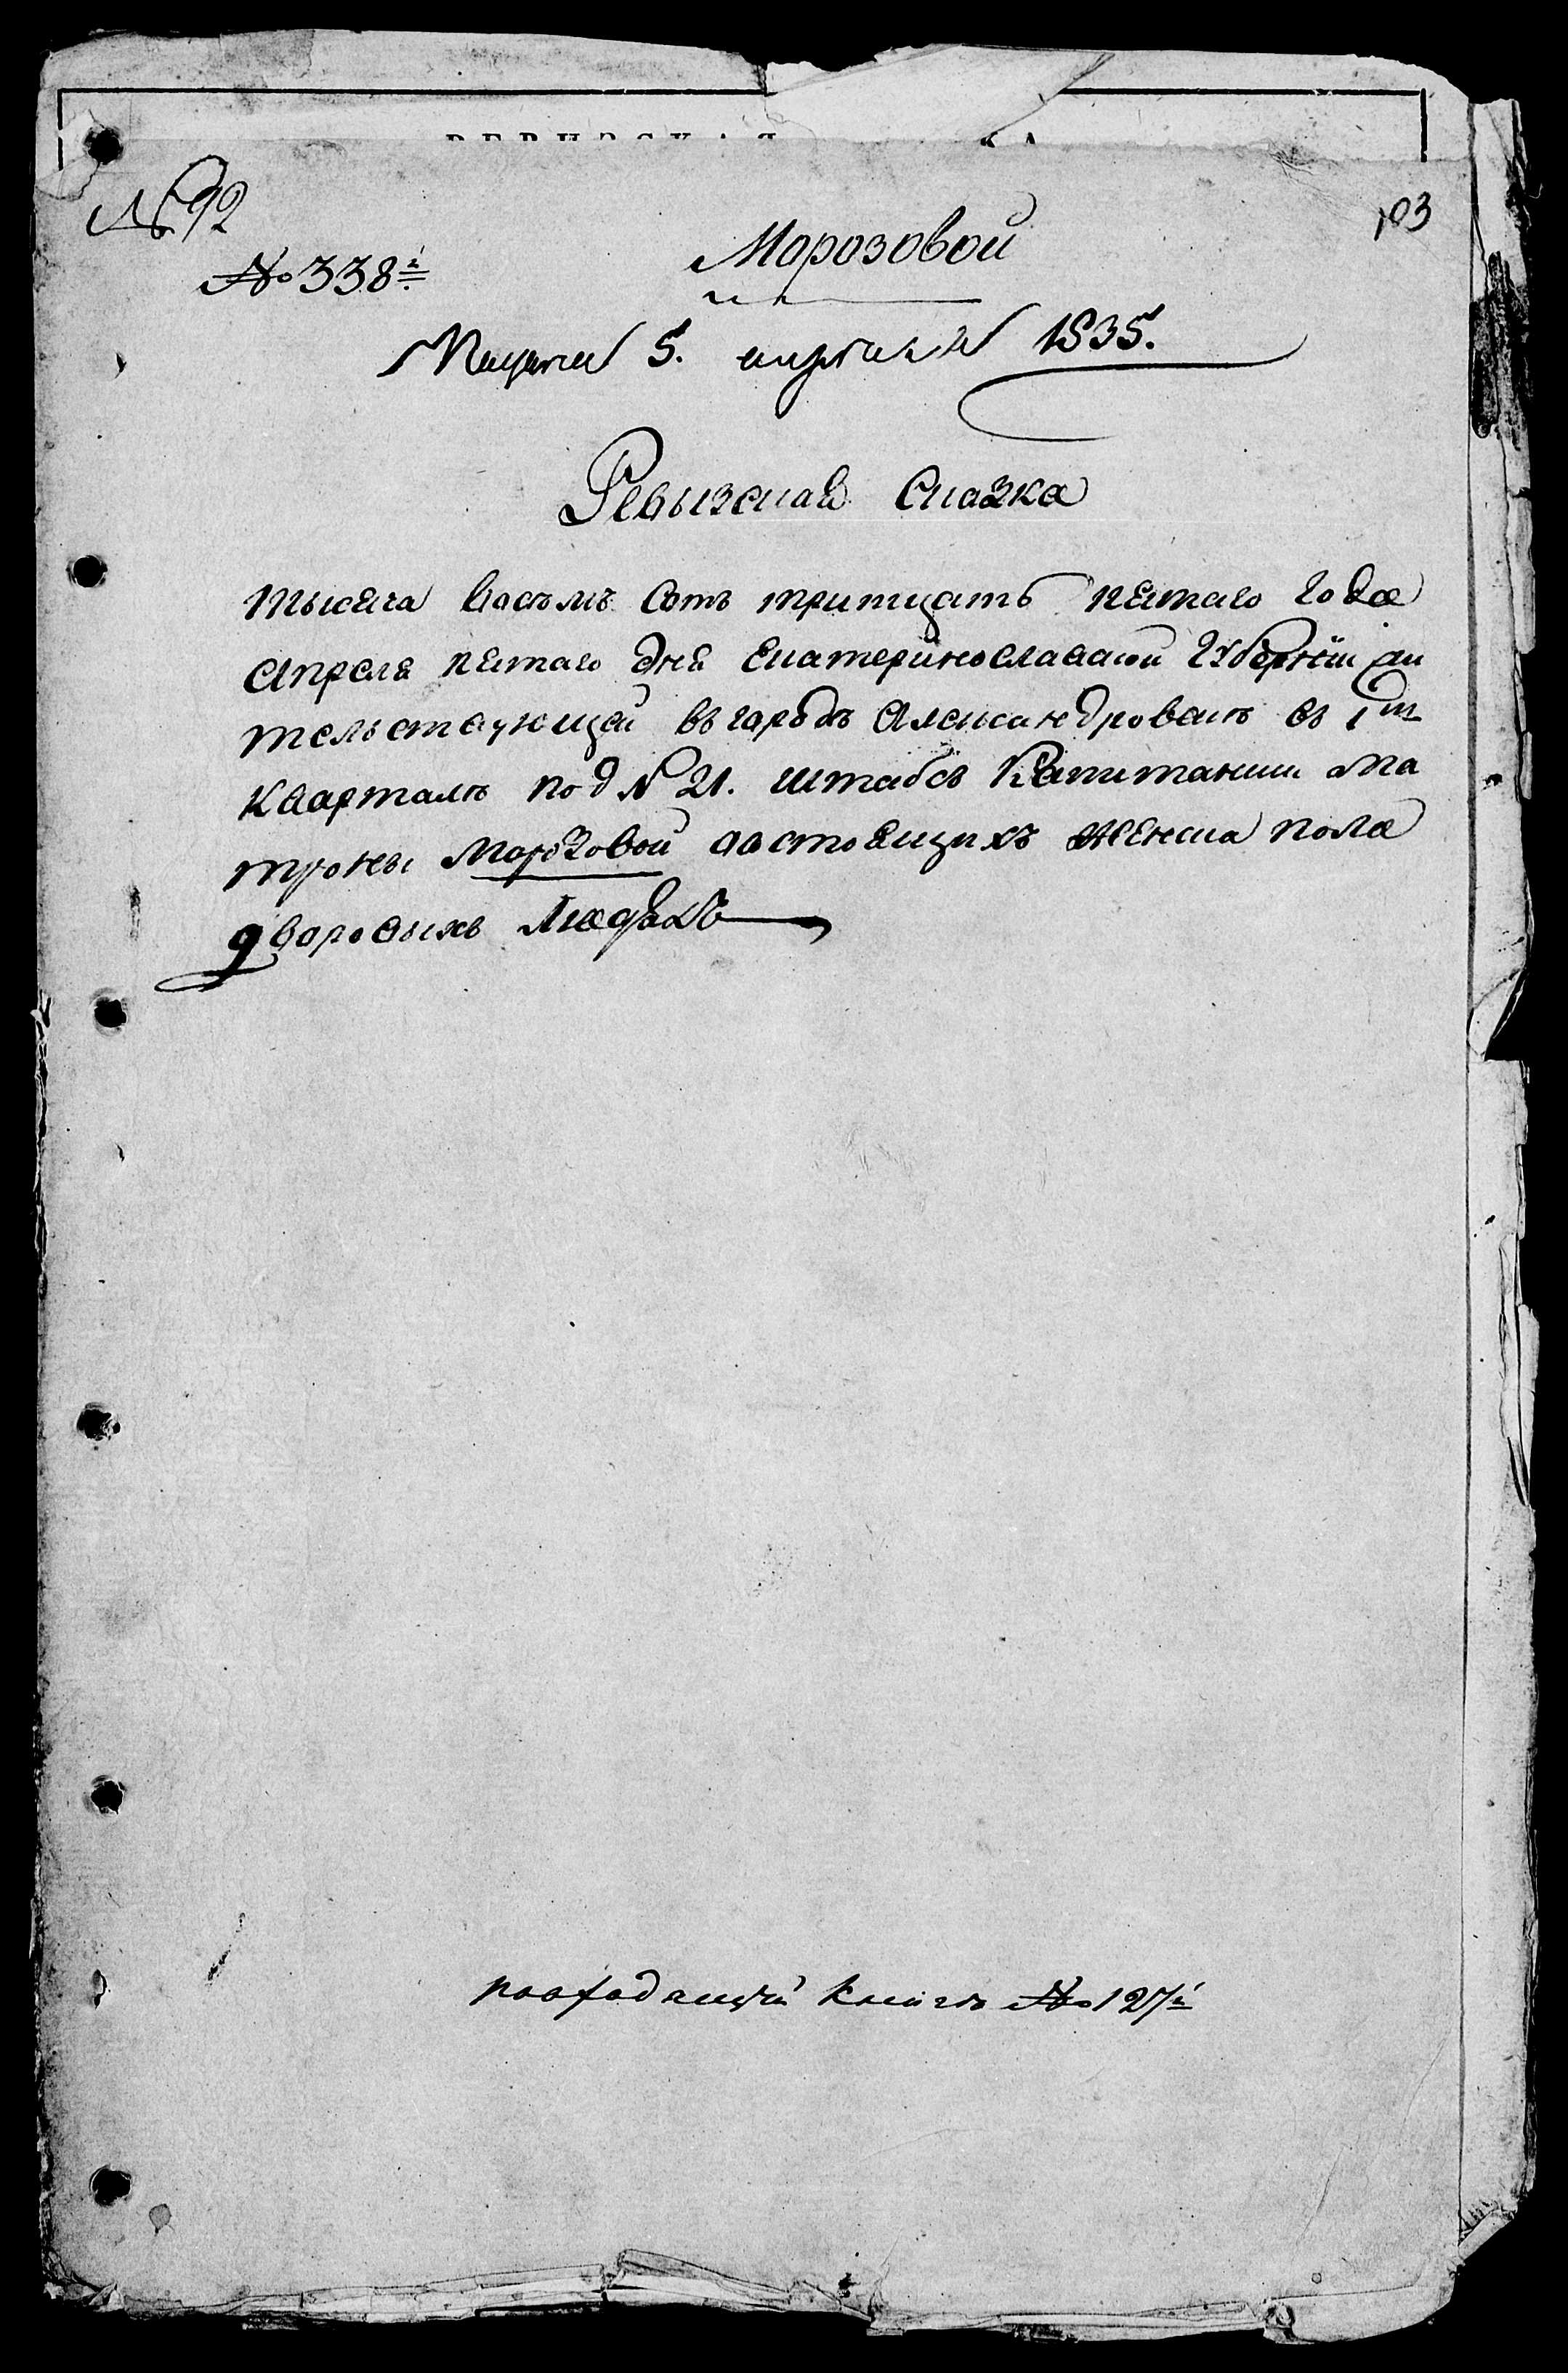 № 92
103
№ 338й
Морозовой
Подана 5. апреля 1835.
Ревызская Сказка
тысяча восъмъ Сотъ тритцать пятаго года
Апреля пятаго дня Екатеринославской Губернїи жи
тельствующей въ городъ Александровскъ въ 1м
Кварталъ под № 21. штабсъ Капитанши Ма
троны Морозовой состоящихъ женска пола
дворовыхъ людяхъ
по входящей книгъ № 127й